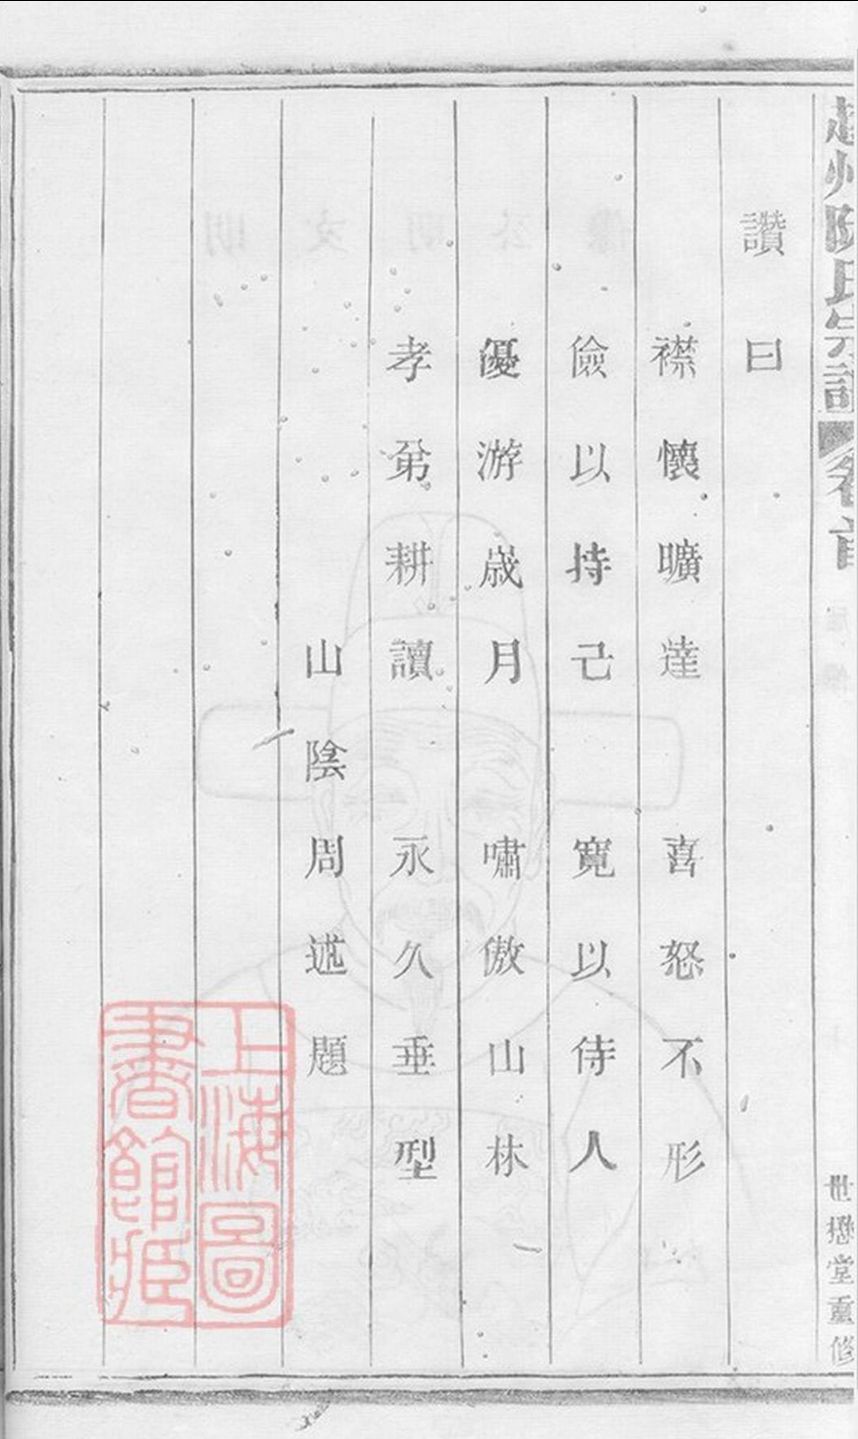 州氏宗譜 卷首
世懋堂重修
讚曰
襟懷曠達 喜怒不形
儉以持己 寬以待人
優游歲月 嘯傲山林
孝弟耕讀 永久垂型
山陰周述題
上海圖
書館藏